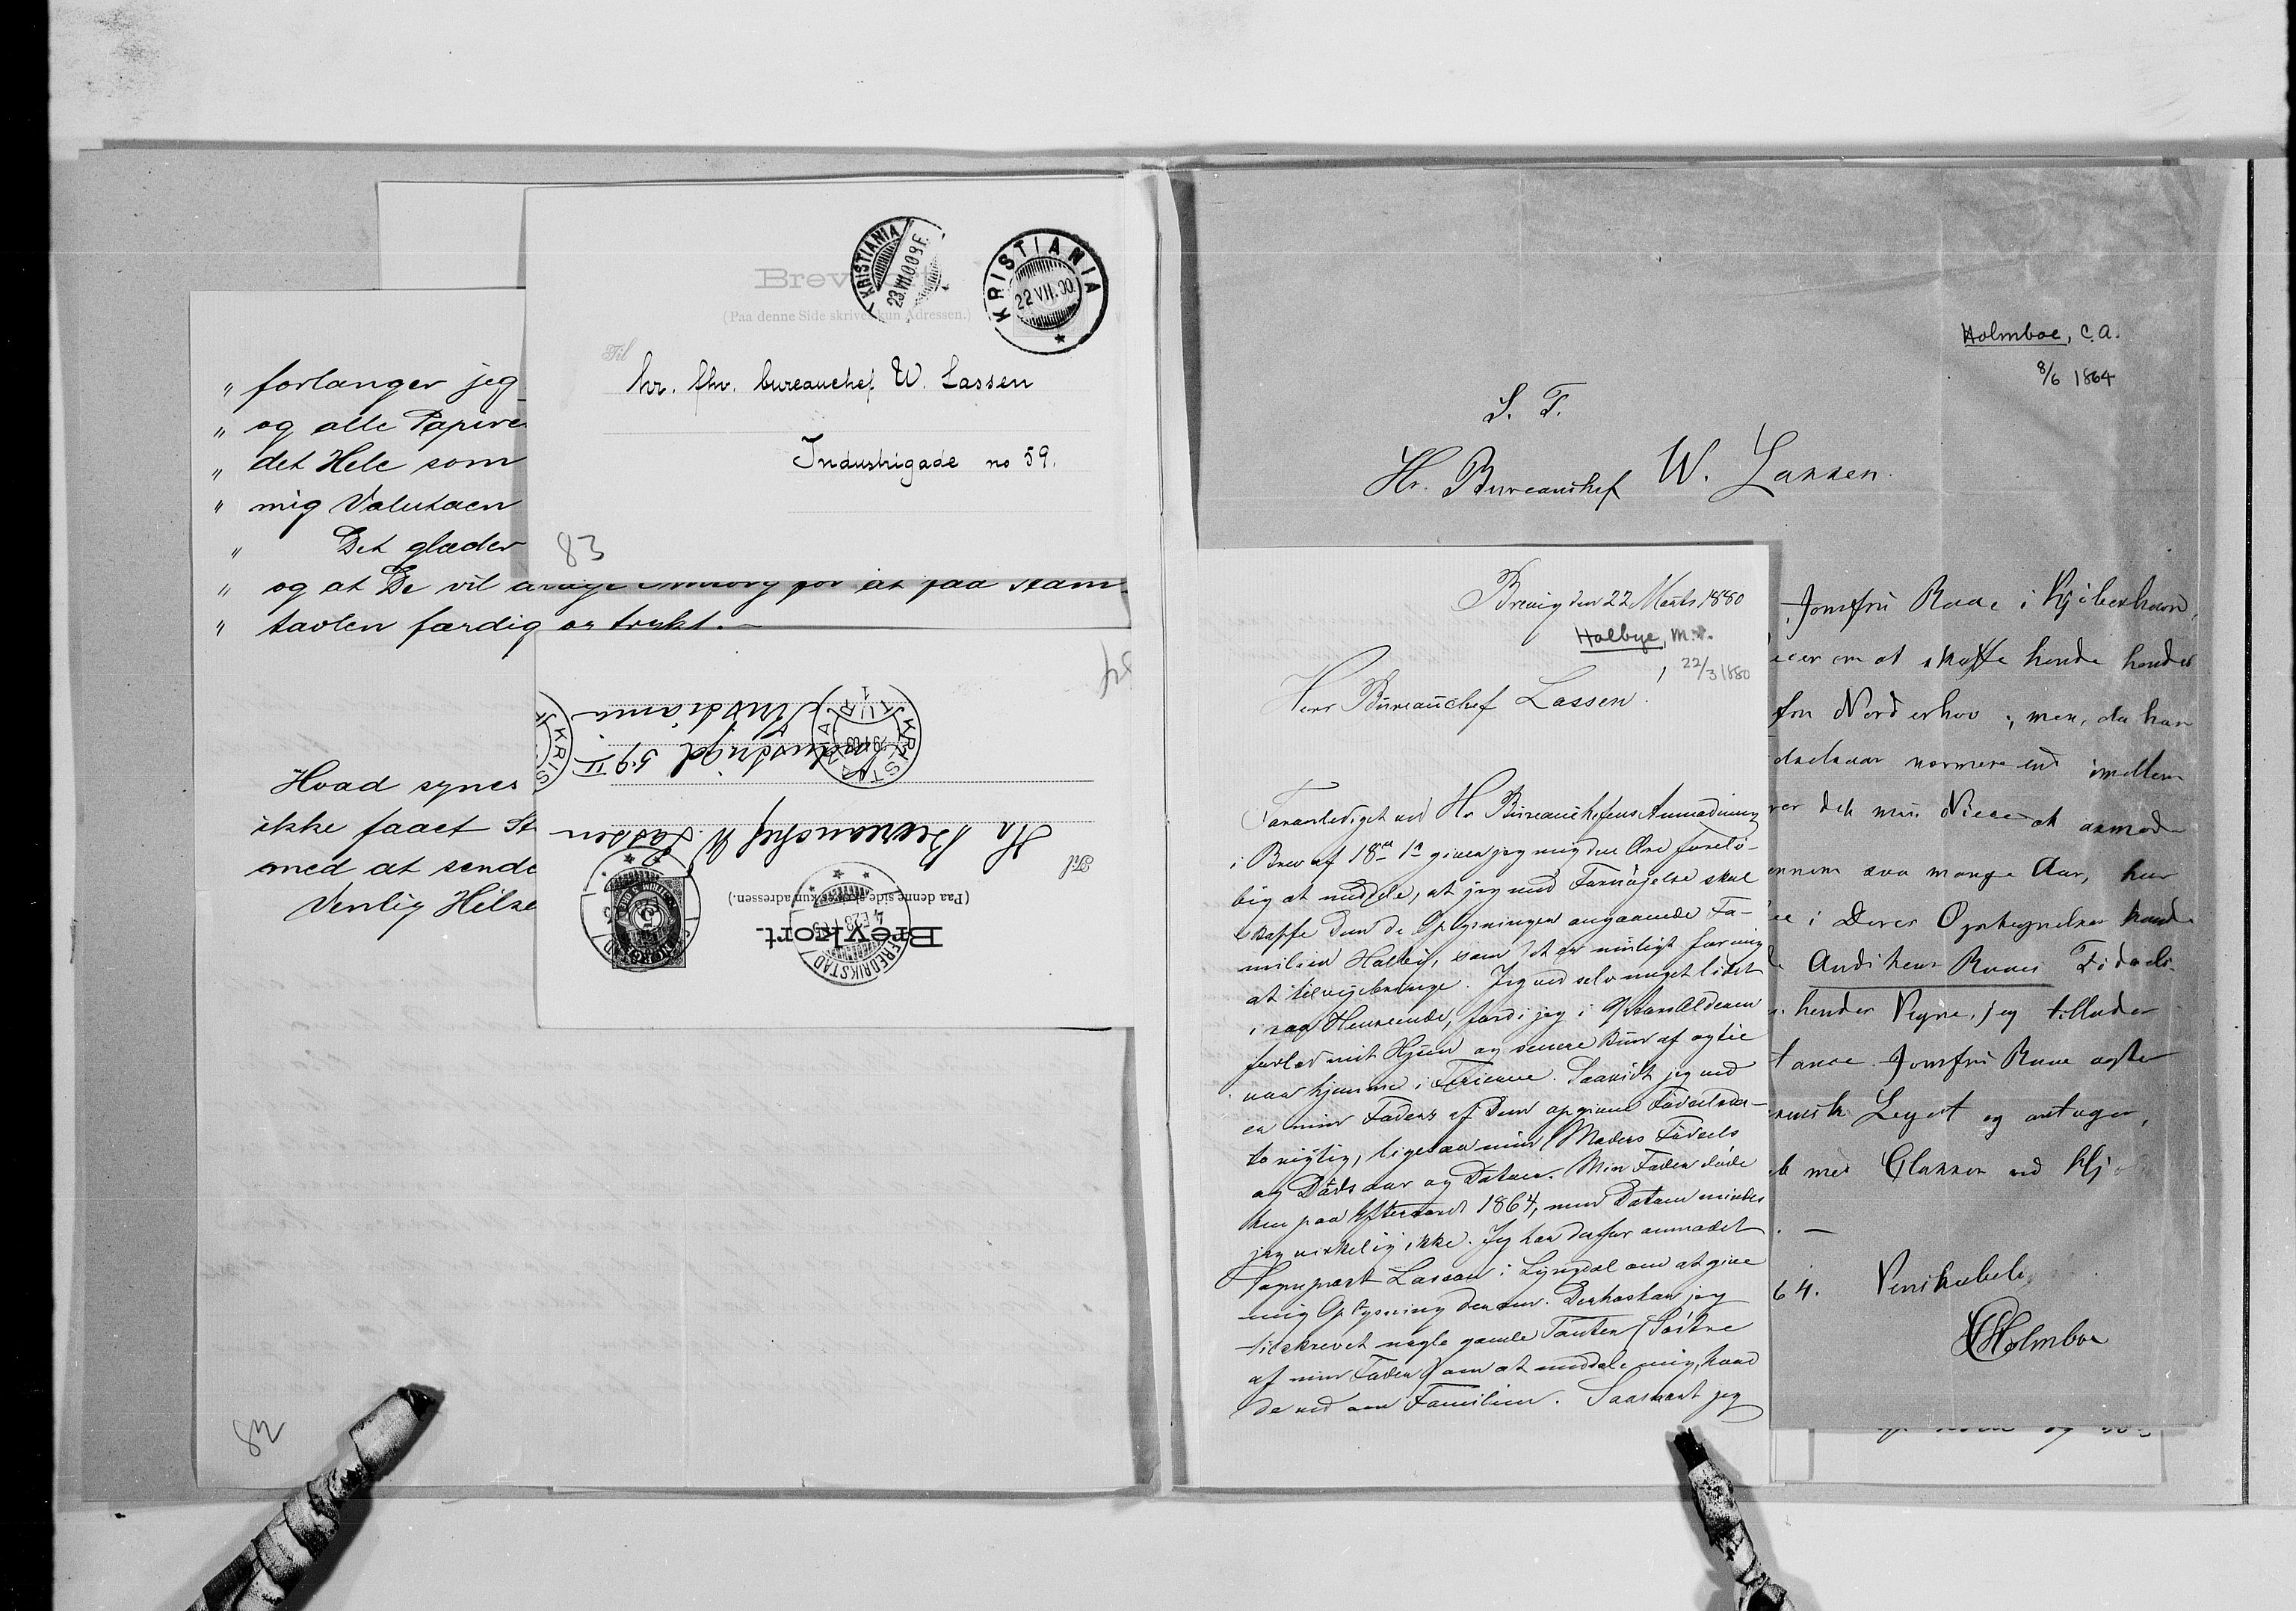 " forlanger jeg
" og alle Papire
" det Hele som
" mig Valutaen
" Det glæder
" og at De vil drage Omsorg for at faa Stam-
" tavlen færdig og trykt. —
Hvad synes
ikke faaet St
med at sende
Venlig Hilse
82
Brevkort
(Paa denne Side skrives kun Adressen.)
KRISTIANIA
23.VII.00.8F.
KRISTIANIA
22 VII.00
Til
hr. fhv. bureauchef W. Lassen
Industrigade no 59.
83
Brevkort.
(Paa denne side skrives kun adressen.)
FREDRIKSTAD
Til
Hr Bureauchef W. Lassen
Industrigd 59 II
Kristiania
KRISTIANIA
TUR
KRIS
Holmboe, C.A.
8/6 1864
S. T.
Hr. Bureauchef W. Lassen.
Jomfru Raae i Kjøbenhavn,
om at skaffe hende hendes
fra Norderhov; men, da han
nærmere end imellem
det min Niece at anmode
saa mange Aar, har
i Deres Optegnelser
Raaes Fødsels-
hendes Vegne, jeg tillader
Jomfru Raae agter
Legat og antager,
med
64. Venskabeligst
CHolmboe
Brevig den 22 Marts 1880
Holbye, M.
22/3 1880
Herr Bureauchef Lassen!
Foranlediget ved Hr Bureauchefens Anmodning
i Brev af 18de ds giver jeg mig den Ære forelø-
big at meddele, at jeg med Fornøjelse skal
skaffe Dem de Oplysninger angaaende Fa-
milien Holby, som det er muligt for mig
at tilvejebringe. Jeg ved selv meget lidet
i saa Henseende, fordi jeg i Alderen
forlod mit Hjem og senere kun af og til
var hjemme i Ferierne. Saavidt jeg ved
er min Faders af Dem opgivne Fødselsda-
to rigtig, ligesaa min Moders Fødsels
og Dødsaar og Datoer. Min Fader døde
hen paa Efteraaret 1864, men Datoen mindes
jeg virkelig ikke. Jeg har derfor anmodet
Sogneprest Lassen i Lyngdal om at give
mig Oplysning derom. Derhos har jeg
tilskrevet nogle gamle Tanter (Søstre
af min Fader) om at meddele mig, hvad
de ved om Familien. Saasnart jeg